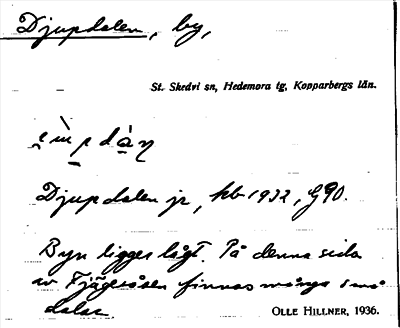 Djupdalen, by,
St. Skedvi sn, Hedemora tg, Kopparbergs län.
Djupdalen jr, kb 1932, G90.
Byn ligger lågt. På denna sida
av Fjägeråsen finnas många små
dalar.
OLLE HILLNER, 1936.